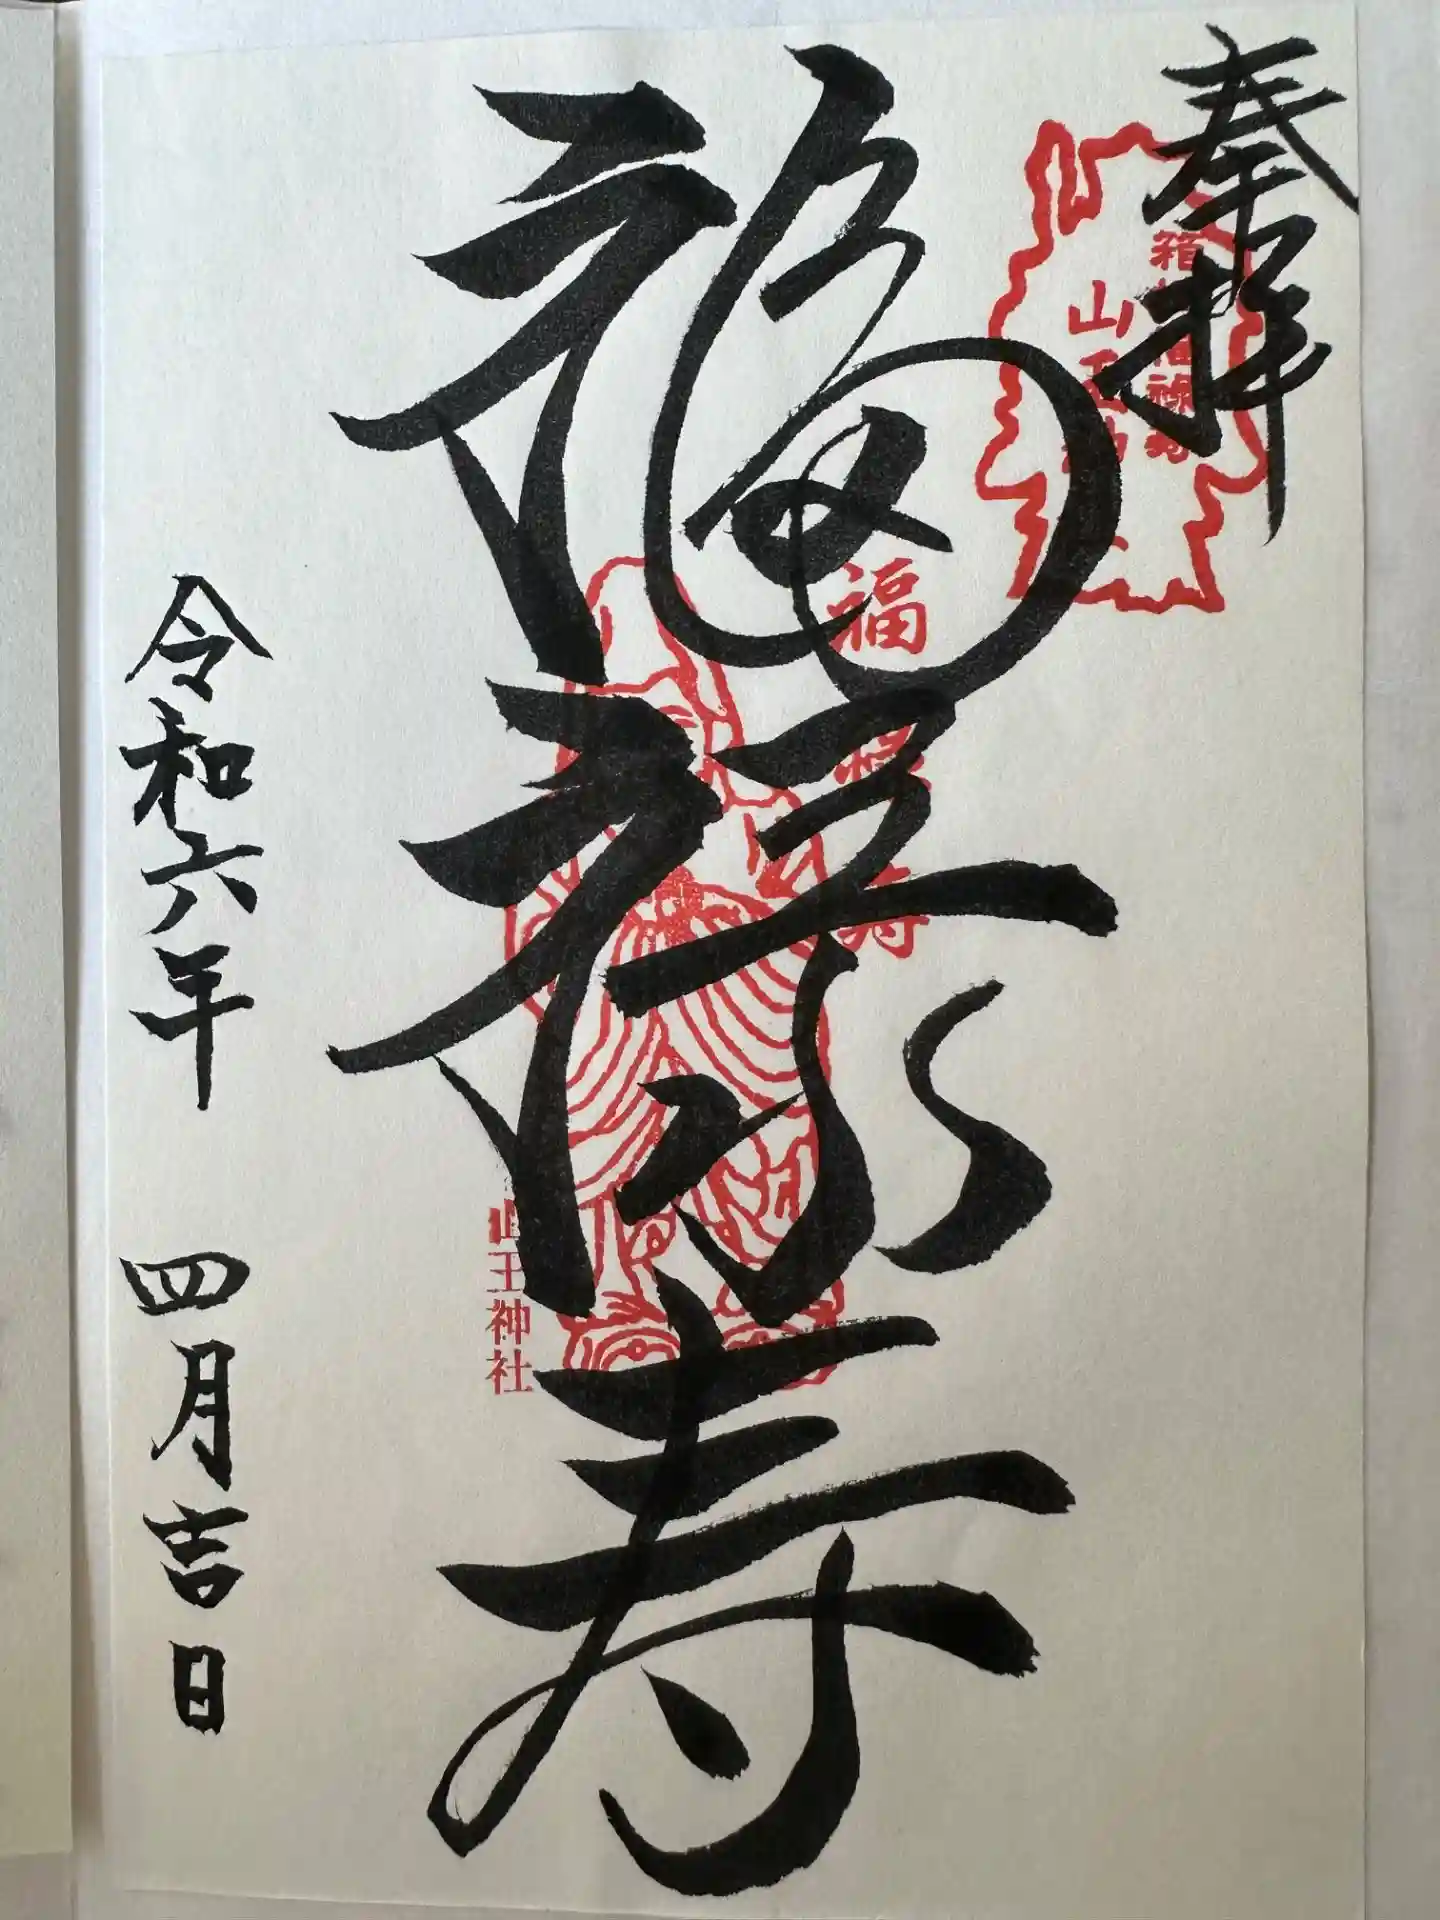 奉拝
山王
福禄寿
福禄寿
山王神社
令和六年 四月吉日